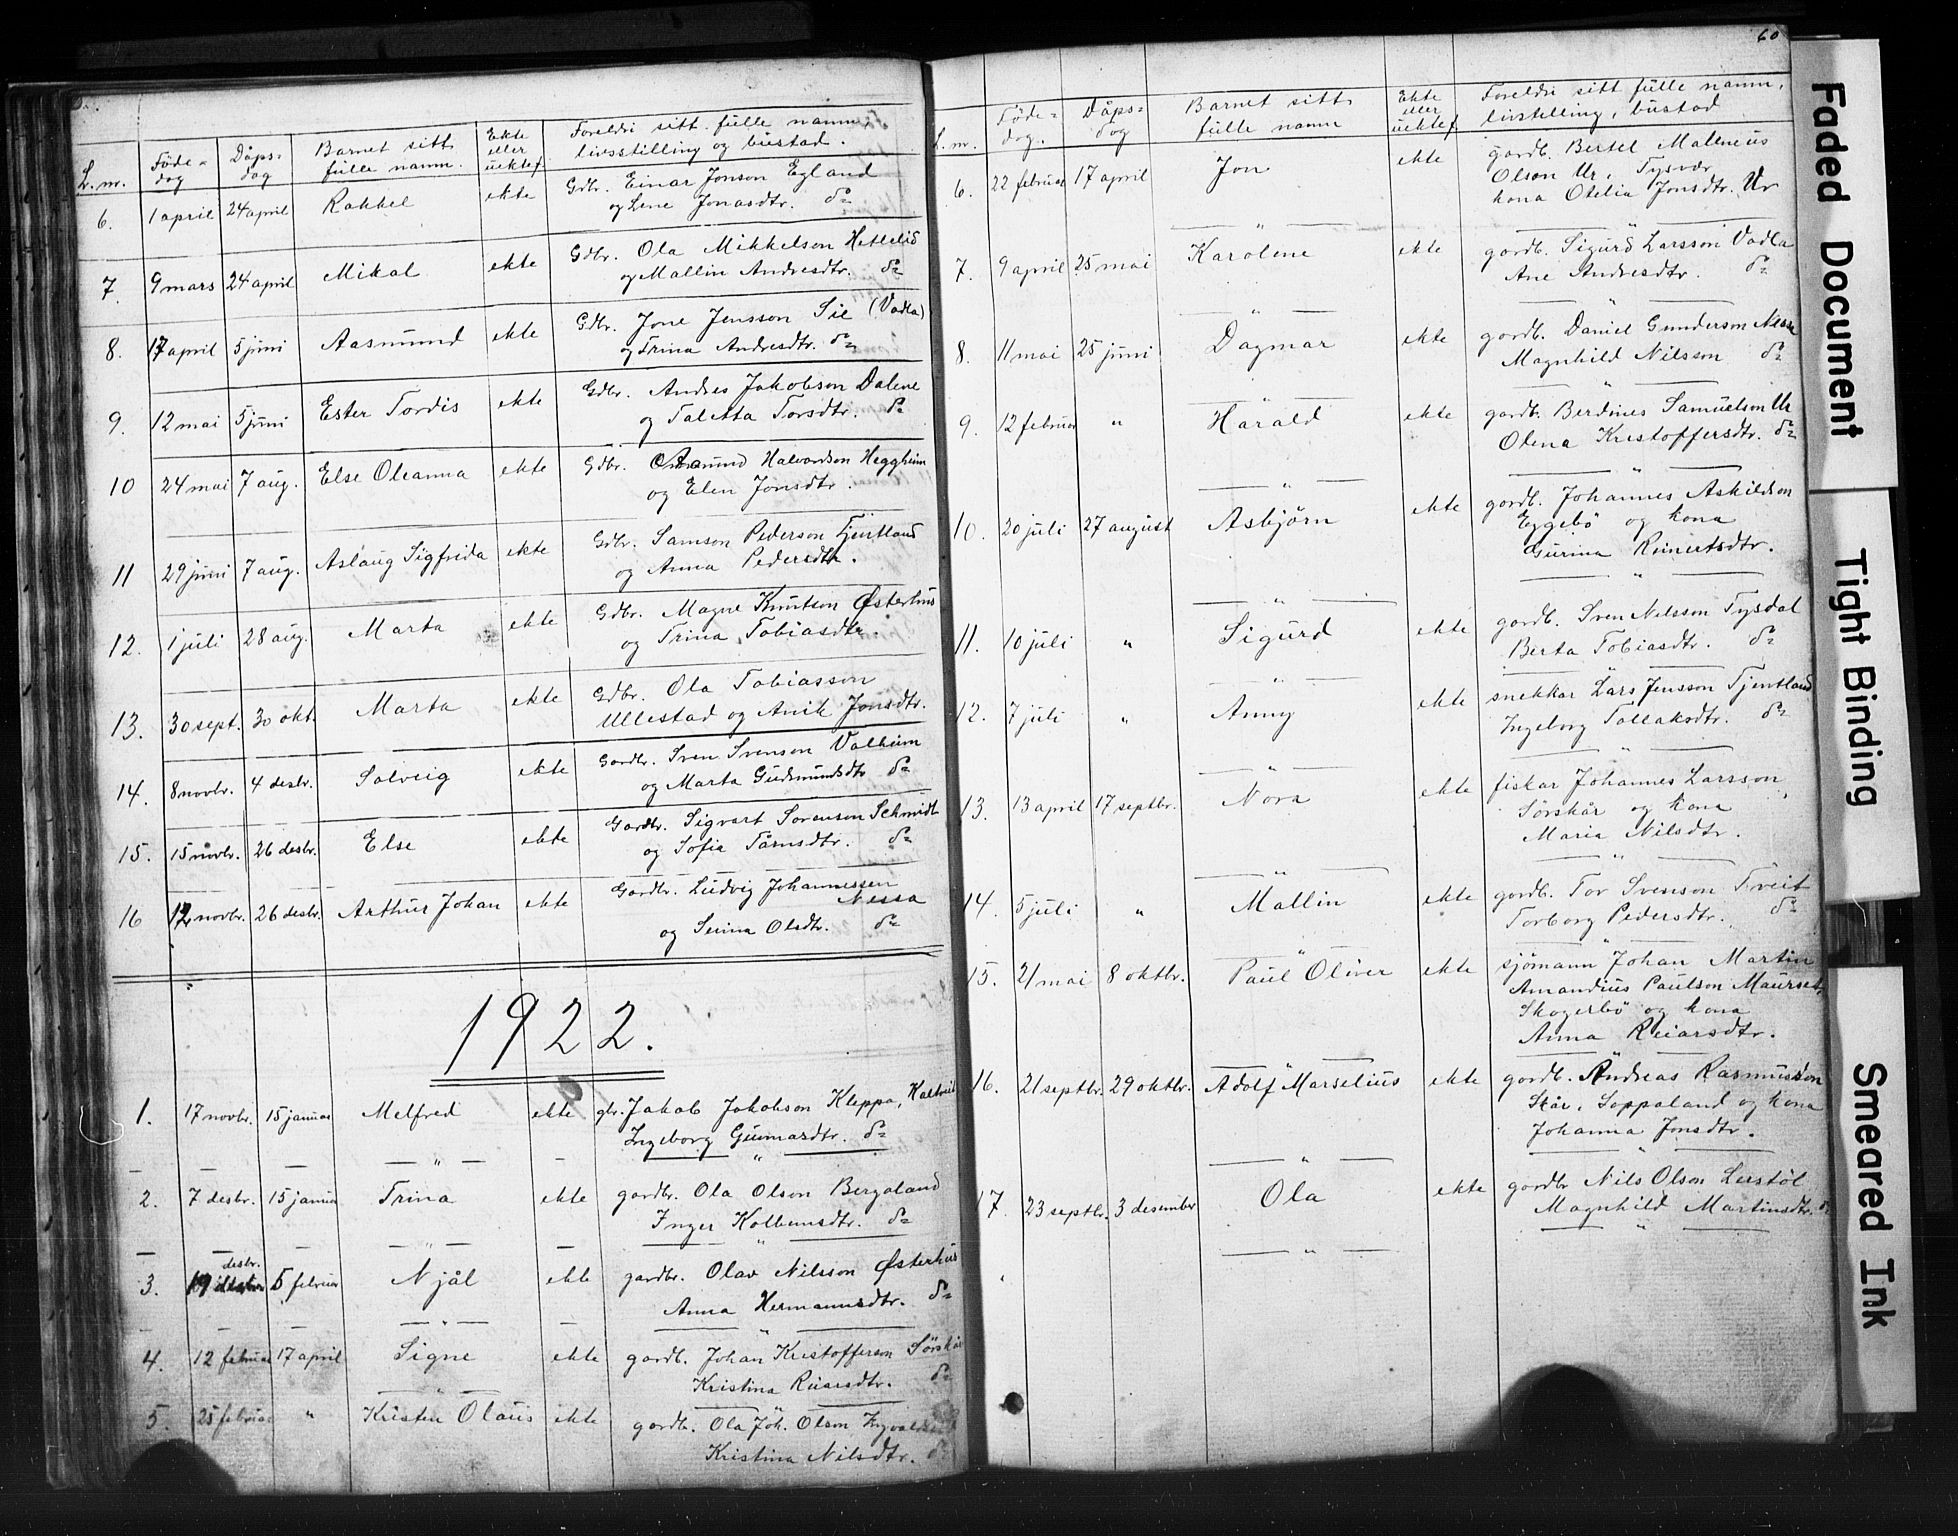 L. nr. Føde-dag Dåps-dag Barnet sitt fulle namn. Ekte eller uektef. Foreldri sitt fulle namn, livsstilling og bustad.
6. 1 april 24 april Rakkel ekte Gdbr. Einar Jonson Egland
og Lene Jonasdtr. do
7. 9 mars 24 april Mikal ekte Gdbr. Ola Mikkelson Hetlelid
og Mallin Andresdtr. do
8. 17 april 5 juni Aasmund ekte Gdbr. Jone Jensson Lie (Vadla)
og Trina Andresdtr. do
9. 12 mai 5 juni Ester Tordis ekte Gdbr. Andres Jakobson Dalene
og Taletta Torsdtr. do
10 24 mai 7 aug. Else Oleanna ekte Gdbr. Halvardson Heggheim
og Elen Jonsdtr.
11 29 juni 7 aug. Aslaug Sigfrida ekte Gdbr. Samson Pederson Tjentland
og Anna Pedersdtr.
12. 1 juli 28 aug. Marta ekte Gdbr. Magne Knutson Østerhus
og Trina Tobiasdtr.
13. 30 sept. 30 okt. Marta ekte Gdbr. Ola Tobiasson
Ullestad og Anik Jonsdtr.
14. 8 novbr. 4 desbr. Solveig ekte Gardbr. Sven Svenson Valheim
og Marta Gudmundsdtr do
15. 15 novbr. 26 desbr. Else ekte Gardbr. Sigvart Sorenson Schmidt
og Sofia Tarnsdtr. do
16 12 novbr. 26 desbr. Arthur Johan ekte Gardbr. Ludvig Johannessen
Nessa
og Serina Olsdtr. do
1922.
1. 17 novbr. 15 januar Melfred ekte gbr. Jakob Jakobson Kleppa,
Ingeborg Gunnarsdtr. do
2. 7 desbr. 15 januar Trina ekte gardbr. Ola Olson Bergaland
Inger Kolbensdtr. do
desbr.
3. 19 5 februar Njål ekte gardbr. Olav Nilsson Østerhus
Anna Hermannsdtr. do
4. 12 februar 17 april Signe ekte gardb. Johan Kristofferson Sørskår
Kristina Reiarsdtr. do
5. 25 februar " Kristen Olaus ekte gardb. Ola Joh. Olson
Kristina Nilsdtr. do
60
L. nr. Føde-dag. Dåps-dag Barnet sitt fulle namn Ekte eller uektef Foreldri sitt fulle namn, livstilling, bustad
6. 22 februar 17 april Jon ekte gardb. Bertel Malleneus
Olson Ur, Tysvær
kona Otelia Jonsdtr. Ur
7. 9 april 25 mai Karolene ekte gardb. Sigurd Larsson Vadla
Ane Andresdtr. do
8. 11 mai 25 juni Dagmar ekte gardb. Daniel Gunderson Nessa
Magnhild Nilsson do
9. 12 februar " Harald ekte gardb. Berdines Samuelson Ur
Olena Kristoffersdtr. do
10. 20 juli 27 august Asbjørn ekte gardb. Johannes Askildson
Eggebö og kona
Gurina Reinertsdtr.
11. 10 juli " Sigurd ekte gardb. Sven Nilsson Tysdal
Berta Tobiasdtr. do
12. 7 juli " Anny ekte snekkar Lars Jensson Tjentland
Ingeborg Tollaksdtr. do
13. 13 april 17 septbr. Nora ekte fiskar Johannes Larsson
Sørskår og kona
Maria Nilsdtr.
14. 5 juli " Mallin ekte gardb. Tor Svenson Tveit
Torborg Pedersdtr. do
15. 21 mai 8 oktbr. Paul Oliver ekte sjömann Johan Martin
Amandius Paulson Maurset,
Skogerbö og kona
Anna Reiarsdtr.
16. 21 septbr. 29 oktbr. Adolf Marselius ekte gardb. Andreas Rasmusson
Skår, Soppaland og kona
Johanna Jonsdtr.
17. 23 septbr. 3 desember Ola ekte gardbr Nils Olson Leestøl
Magnhild Martinsdtr. do
Faded Document
Tight Binding
Smeared Ink